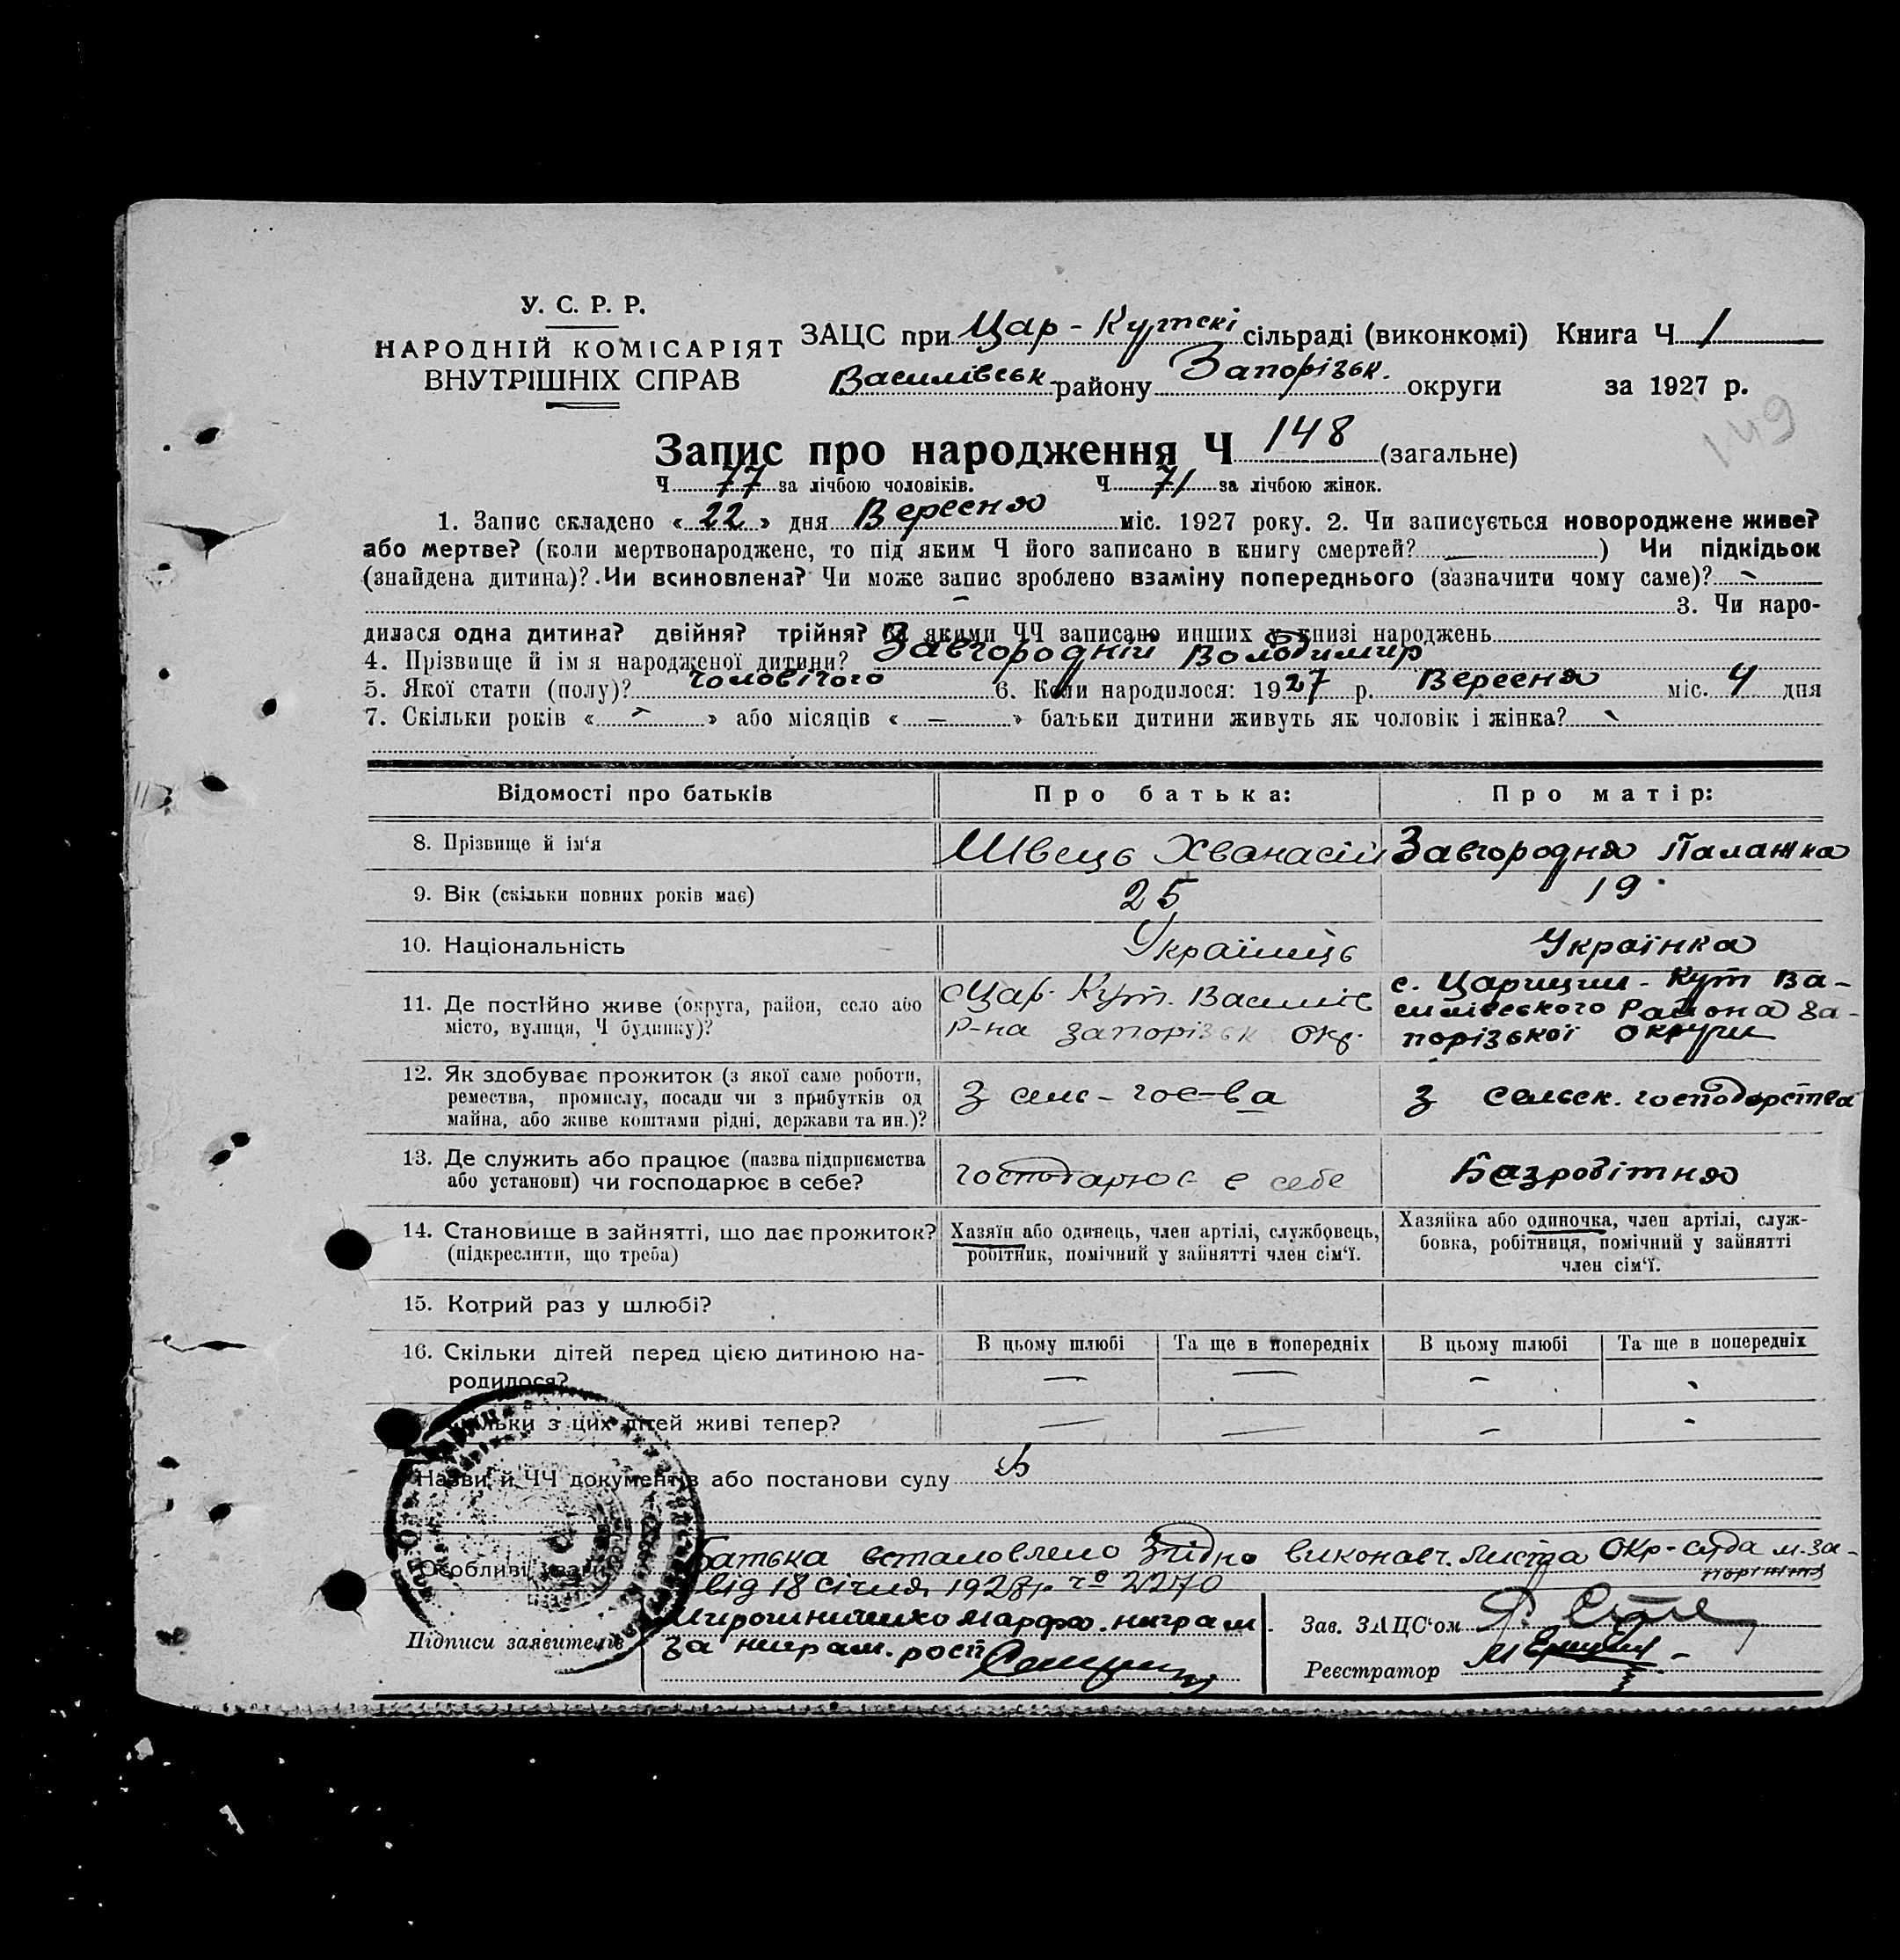 У. С. Р. Р.
НАРОДНІЙ КОМІСАРІЯТ
ВНУТРІШНІХ СПРАВ
ЗАЦС при Цар-Кутскі сільраді (виконкомі) Книга Ч 1
Василівськ. району Запорізьк. округи за 1927 р.
149
Запис про народження Ч 148 (загальне)
Ч 77 за лічбою чоловіків. Ч 71 за лічбою жінок.
1. Запис складено « 22 » дня Вересня міс. 1927 року. 2. Чи записується новороджене живе?
або мертве? (коли мертвонароджене, то під яким Ч його записано в книгу смертей? — ) Чи підкідьок
(знайдена дитина)? Чи всиновлена? Чи може запис зроблено взаміну попереднього (зазначити чому саме)?
3. Чи наро-
дилася одна дитина? двійня? трійня? якими ЧЧ записано инших у книзі народжень
4. Прізвище й імя народженої дитини? Завгородній Володимир
5. Якої стати (полу)? чоловічого 6. Коли народилося: 1927 р. Вересня міс. 4 дня
7. Скільки років « – » або місяців « – » батьки дитини живуть як чоловік і жінка?
Відомості про батьків Про батька: Про матір:
8. Прізвище й ім'я Швець Хванасій Завгородня Палажка
9. Вік (скільки повних років має) 25 19
10. Національність Українець Українка
11. Де постійно живе (округа, район, село або місто, вулиця, Ч будинку)?
Цар. Кут. Василів
Р-на Запорізьк Окр.
с. Царицин-Кут Ва-
силівського Района За-
порізької Округи
12. Як здобуває прожиток (з якої саме роботи,
ремества, промислу, посади чи з прибутків од
майна, або живе коштами рідні, держави та ин.)?
З сільс-гос-ва
З сельск. господарства
13. Де служить або працює (назва підприємства
або установи) чи господарює в себе?
господарює в себе
Безробітня
14. Становище в зайнятті, що дає прожиток?
(підкреслити, що треба)
Хазяїн або одинець, член артілі, службовець,
робітник, помічний у зайнятті член сім'ї.
Хазяйка або одиночка, член артілі, служ-
бовка, робітниця, помічний у зайнятті
член сім'ї.
15. Котрий раз у шлюбі?
16. Скільки дітей перед цією дитиною на-
родилося?
В цьому шлюбі Та ще в попередніх В цьому шлюбі Та ще в попередніх
з цих дітей живі тепер?
Назви й ЧЧ документів або постанови суду
Особливі уваги
Батька встановлено Згідно виконавч. листа Окр-суда м. За-
поріжжя
від 18 січня 1928 р. №2270
Підписи заявителів
Мирошниченко Марфа. неграм.
За неграм. росп
Зав. ЗАЦС'ом
Реєстратор